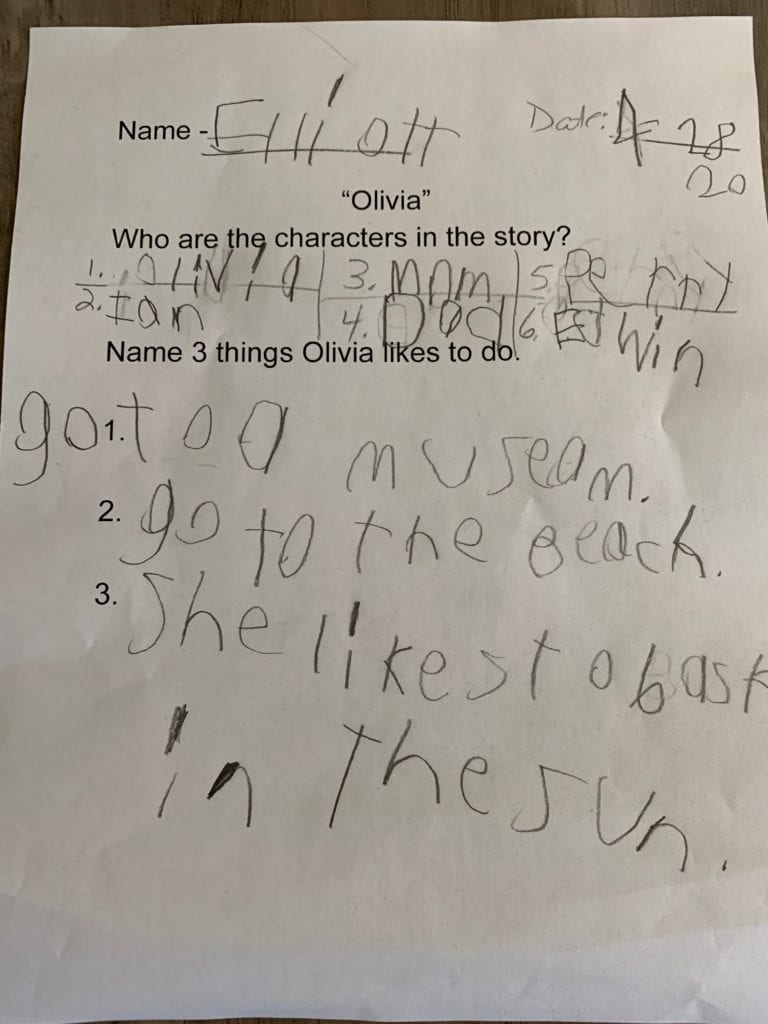 Name - Elliott Date: 4-28
20
“Olivia”
Who are the characters in the story?
1. Olivia 3. Mom 5. Perry
2. Ian 4. Dad 6. Edwin
Name 3 things Olivia likes to do.
1. go to a museam.
2. go to the Beach.
3. She likes to bask
in the sun.